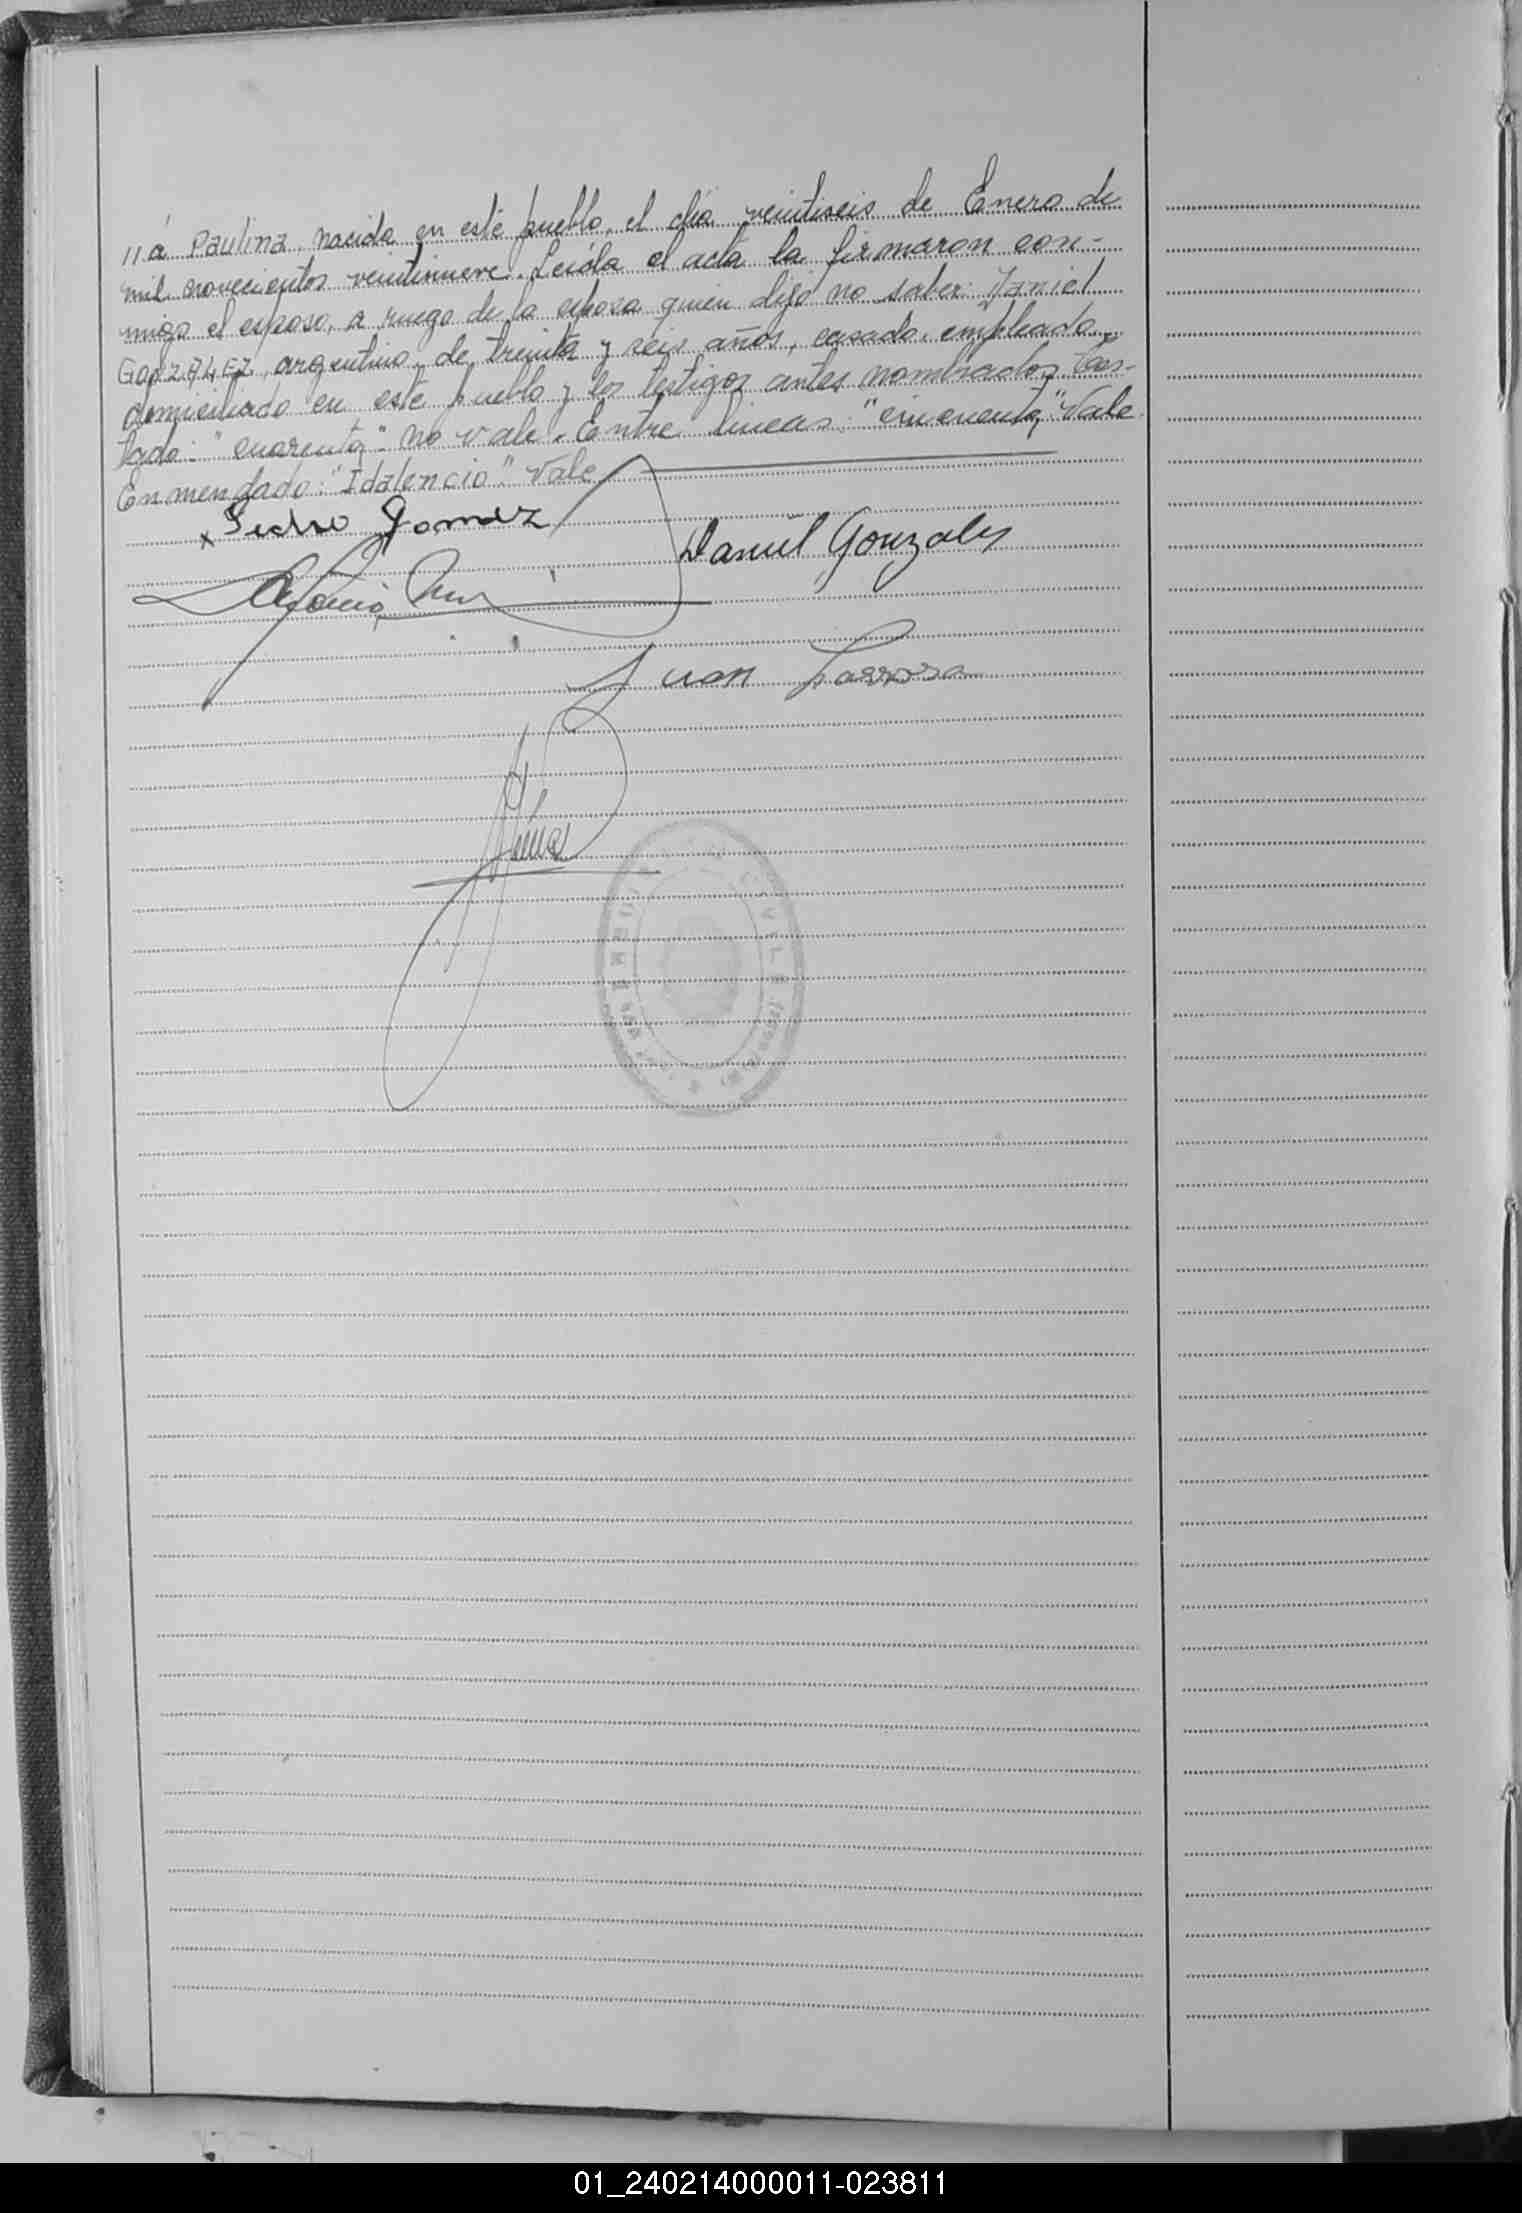 "a Paulina nacida en este pueblo, el día veintiseis de Enero de
mil novecientos veintinueve. Leida el acta la firmaron con-
migo el esposo, a ruego de la esposa quien dijo no saber: Daniel
GONZALEZ, argentino, de treinta y seis años, casado, empleado,
domiciliado en este pueblo y los testigos antes nombrados. Tes-
tado: "cuarenta". no vale. Entre lineas: "cincuenta" Vale.
Enmendado: "Idalencio". Vale.
x Pedro Gomez
Daniel Gonzales
Juan
01_240214000011-023811